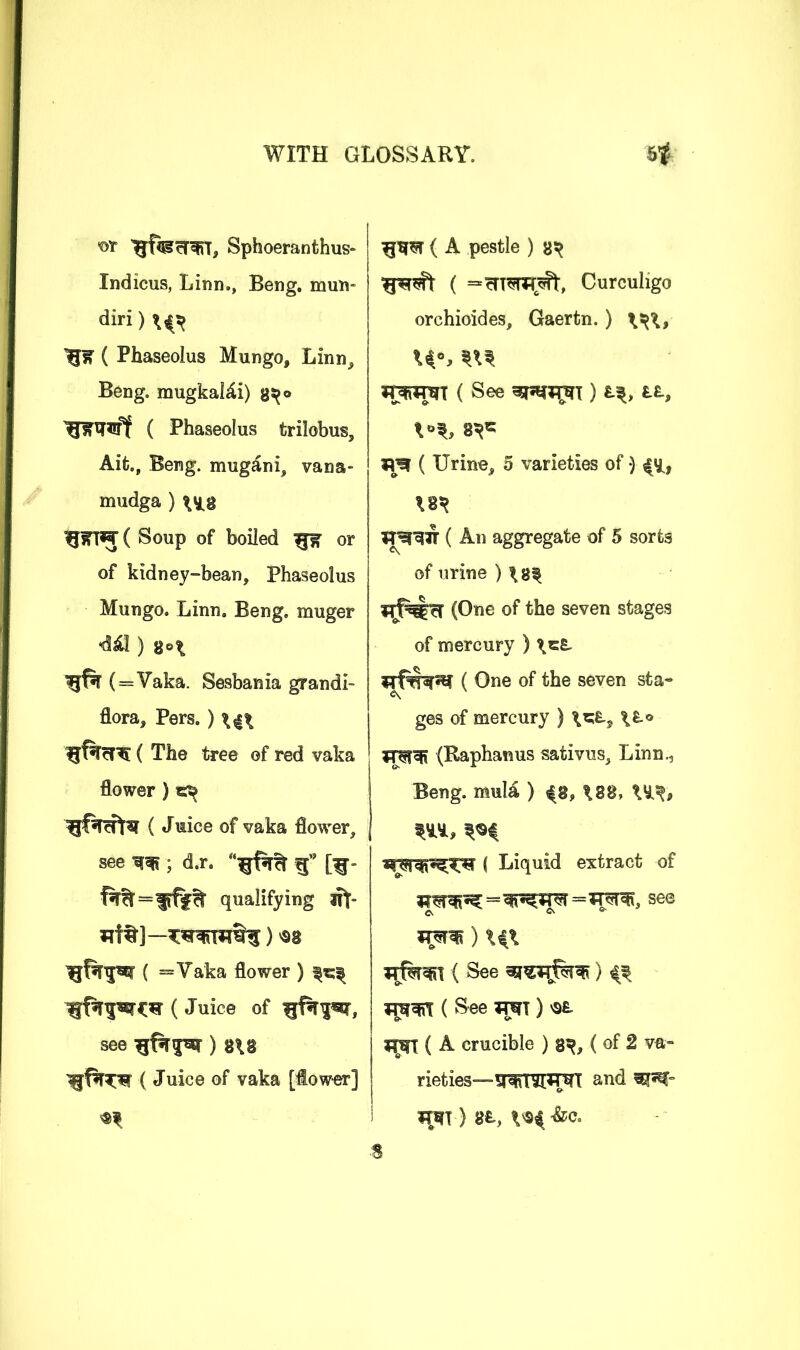 WITH GLOSSARY.
or मुण्डितिका, Sphoeranthus-
Indicus, Linn., Beng. mun-
diri) १६२
मुद्ग ( Phaseolus Mungo, Linn,
Beng. mugkalái) ४२०
मुद्गपर्णी ( Phaseolus trilobus,
Ait., Beng. mugáni, vana-
mudga ) १५४
( Soup of boiled मुद्ग or
of kidney-bean, Phaseolus
Mungo. Linn. Beng. muger
dál ) ४०१
मुनि (=Vaka. Sesbania grandi-
flora, Pers. ) १६१
मुनितरु ( The tree of red vaka
flower ) ८२
मुनितोय ( Juice of vaka flower,
see वक ; d.r. qualifying
) ७४
मुनिपुष्प ( =Vaka flower ) ३८३
मुनिपुष्परस ( Juice of मुनिपुष्प,
see मुनिपुष्प ) ४१४
मुनिरस ( Juice of vaka [flower]
७३
मुषल ( A pestle ) ४२
मुषली ( =तालमूली, Curculigo
orchioides, Gaertn. ) १२१,
१६०, ३१३
मूकमूषा ( See अन्धमूषा ) ९३, ९९,
१०३, ४२८
मूत्र ( Urine, 5 varieties of ) ६५,
१४२
मूत्रपञ्चक ( An aggregate of 5 sorts
of urine ) १४३
मूर्च्छित (One of the seven stages
of mercury ) १८९
( One of the seven sta-
ges of mercury ) १८९, १९०
मूलक (Raphanus sativus, Linn.,
Beng. mulá ) ६४, १४४, १५२,
३५५, ३७६
( Liquid extract of
मूलकार्द्र=कार्द्रमूल=मूलक, see
मूलक ) १६१
( See ) ६३
मूषिका ( See मूषा ) ७९
मूषा ( A crucible ) ४२, ( of 2 va-
rieties—प्रकाशमूषा and अन्ध-
मूषा ) ४९, १७६ &c.
8